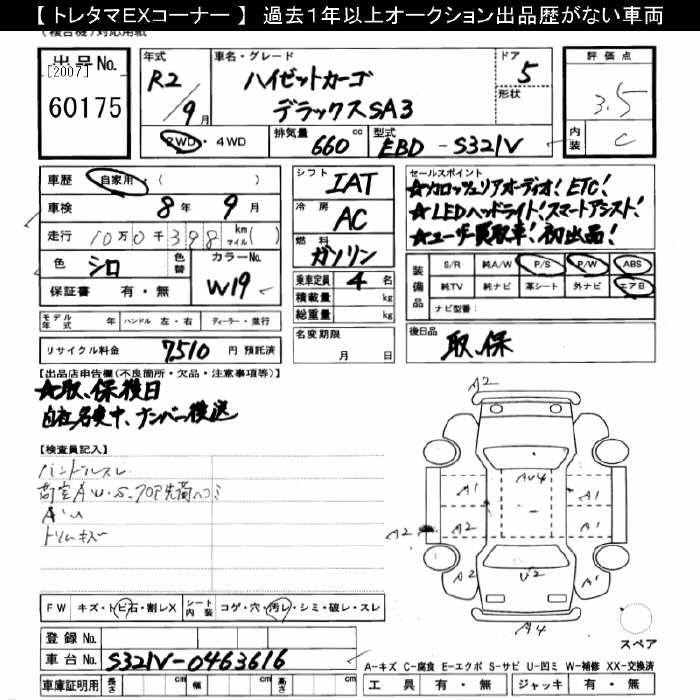 【 トレタマEXコーナー 】 過去１年以上オークション出品歴がない車両
出品No.
[2007]
60175
年式 車名・グレード ドア 評価点
R2/9月 ハイゼットカーゴ 5 3.5
デラックスSA3 形状
2WD・4WD 排気量 660 cc 型式 EBD-S321V 内装 C
車歴 自家用・( )
車検 8年 9月
走行 10万0千398 km マイル( )
色 シロ 色替 カラーNo. W19
保証書 有・無
モデル年式 年 ハンドル 左・右 ディーラー・並行
リサイクル料金 7,510 円 預託済
シフト IAT
冷房 AC
燃料 ガソリン
乗車定員 4 名
積載量 kg
総重量 kg
名変期限
月 日
セールスポイント
☆カロッツェリアオーディオ! ETC!
☆LEDヘッドライト! スマートアシスト!
☆ユーザー買取車! 初出品!
装備品 S/R 純A/W P/S P/W ABS
純TV 純ナビ 革シート 外ナビ エアB
ナビ型番:
後日品
取、保
【出品店申告欄(不良箇所・欠品・注意事項等)】
☆取、保後日
自社名変中、ナンバー後送
【検査員記入】
ハンドルスレ
荷室AU.S.フロア先荷ヘコミ
AU
トリムキズ
FW キズ・トビ石・割レX シート内装 コゲ・穴・汚レ・シミ・破レ・スレ
登録No.
車台No. S321V-0463616
車庫証明用 長さ cm 幅 cm 高さ cm
A2
AU4
A1 A1
A2 A2 A2
A2 U2 A1
A4
スペア
A-キズ C-腐食 E-エクボ S-サビ U-凹ミ W-補修 XX-交換済
工具 有・無 ジャッキ 有・無